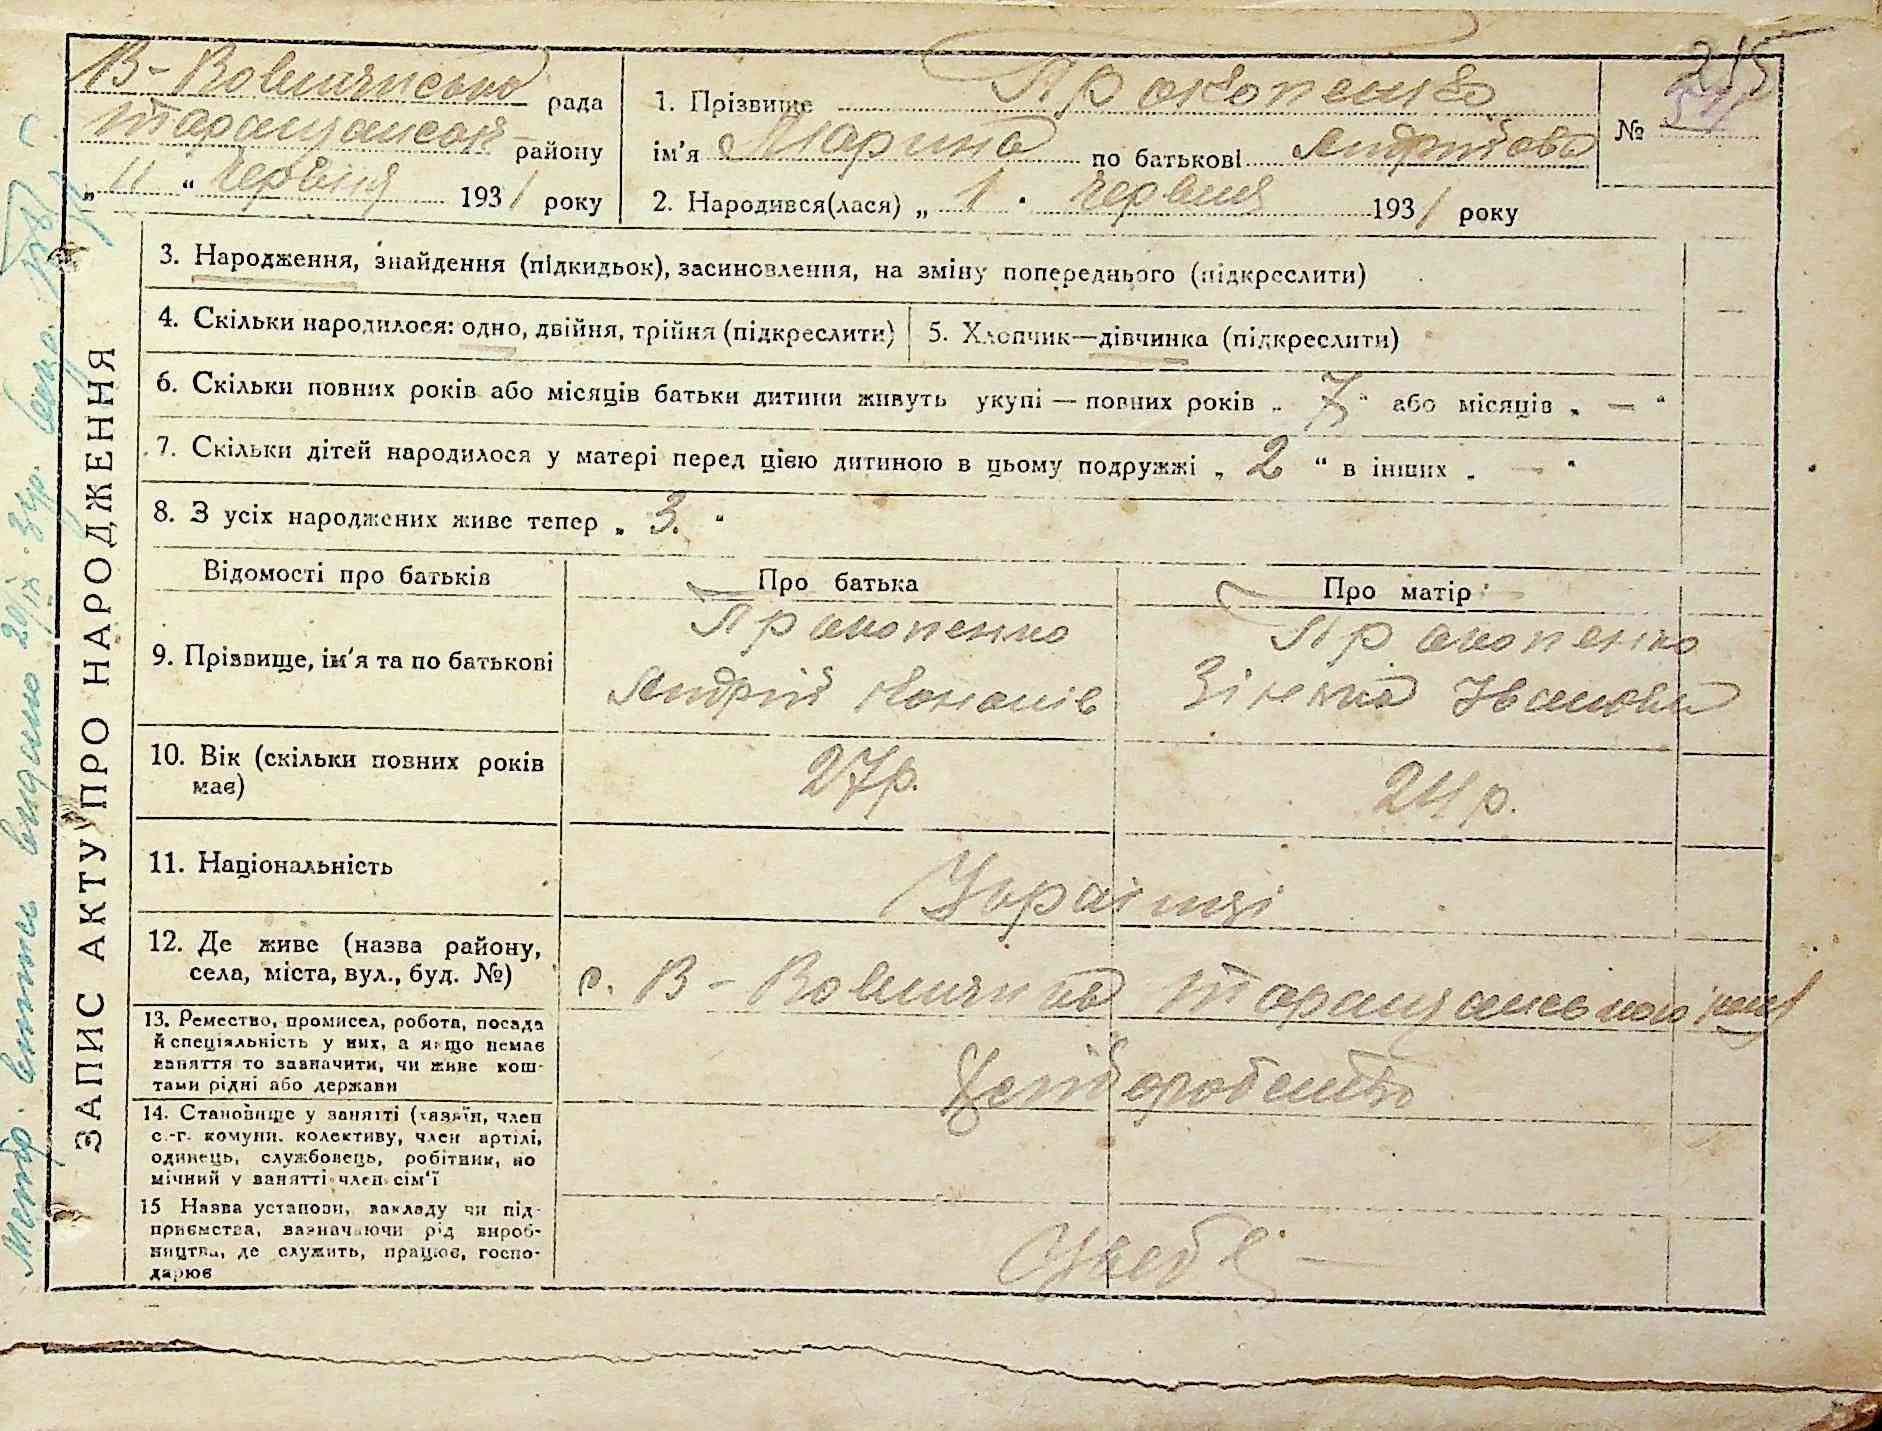 В-Вовнянська рада
Таращанськ району
„ 11 “ червня 1931 року
1. Прізвище Прокопенко
ім'я Марина по батькові Андрійова
2. Народився(лася) „ 1 “ червня 1931 року
№ 215
ЗАПИС АКТУ ПРО НАРОДЖЕННЯ
3. Народження, знайдення (підкидьок), засиновлення, на зміну попереднього (підкреслити)
4. Скільки народилося: одно, двійня, трійня (підкреслити)
5. Хлопчик—дівчинка (підкреслити)
6. Скільки повних років або місяців батьки дитини живуть укупі — повних років „ 7 “ або місяців „ — “
7. Скільки дітей народилося у матері перед цією дитиною в цьому подружжі „ 2 “ в інших „ — “
8. З усіх народжених живе тепер „ 3. “
Відомості про батьків
Про батька
Про матір
9. Прізвище, ім'я та по батькові
Прокопенко
Андрій Кононів
Прокопенко
Зінька Іванова
10. Вік (скільки повних років
має)
27р.
24 р.
11. Національність
Українці
12. Де живе (назва району,
села, міста, вул., буд. №)
с. В-Вовнянка Таращанського рай
13. Ремество, промисел, робота, посада
й спеціяльність у них, а якщо немає
заняття то зазначити, чи живе кош-
тами рідні або держави
Хліборобство
14. Становище у занятті (хазяїн, член
с.-г. комуни, колективу, член артілі,
одинець, службовець, робітник, по
мічний у занятті член сім'ї
15 Назва установи, закладу чи під-
приємства, зазначаючи рід вироб-
ництва, де служить, працює, госпо-
дарює